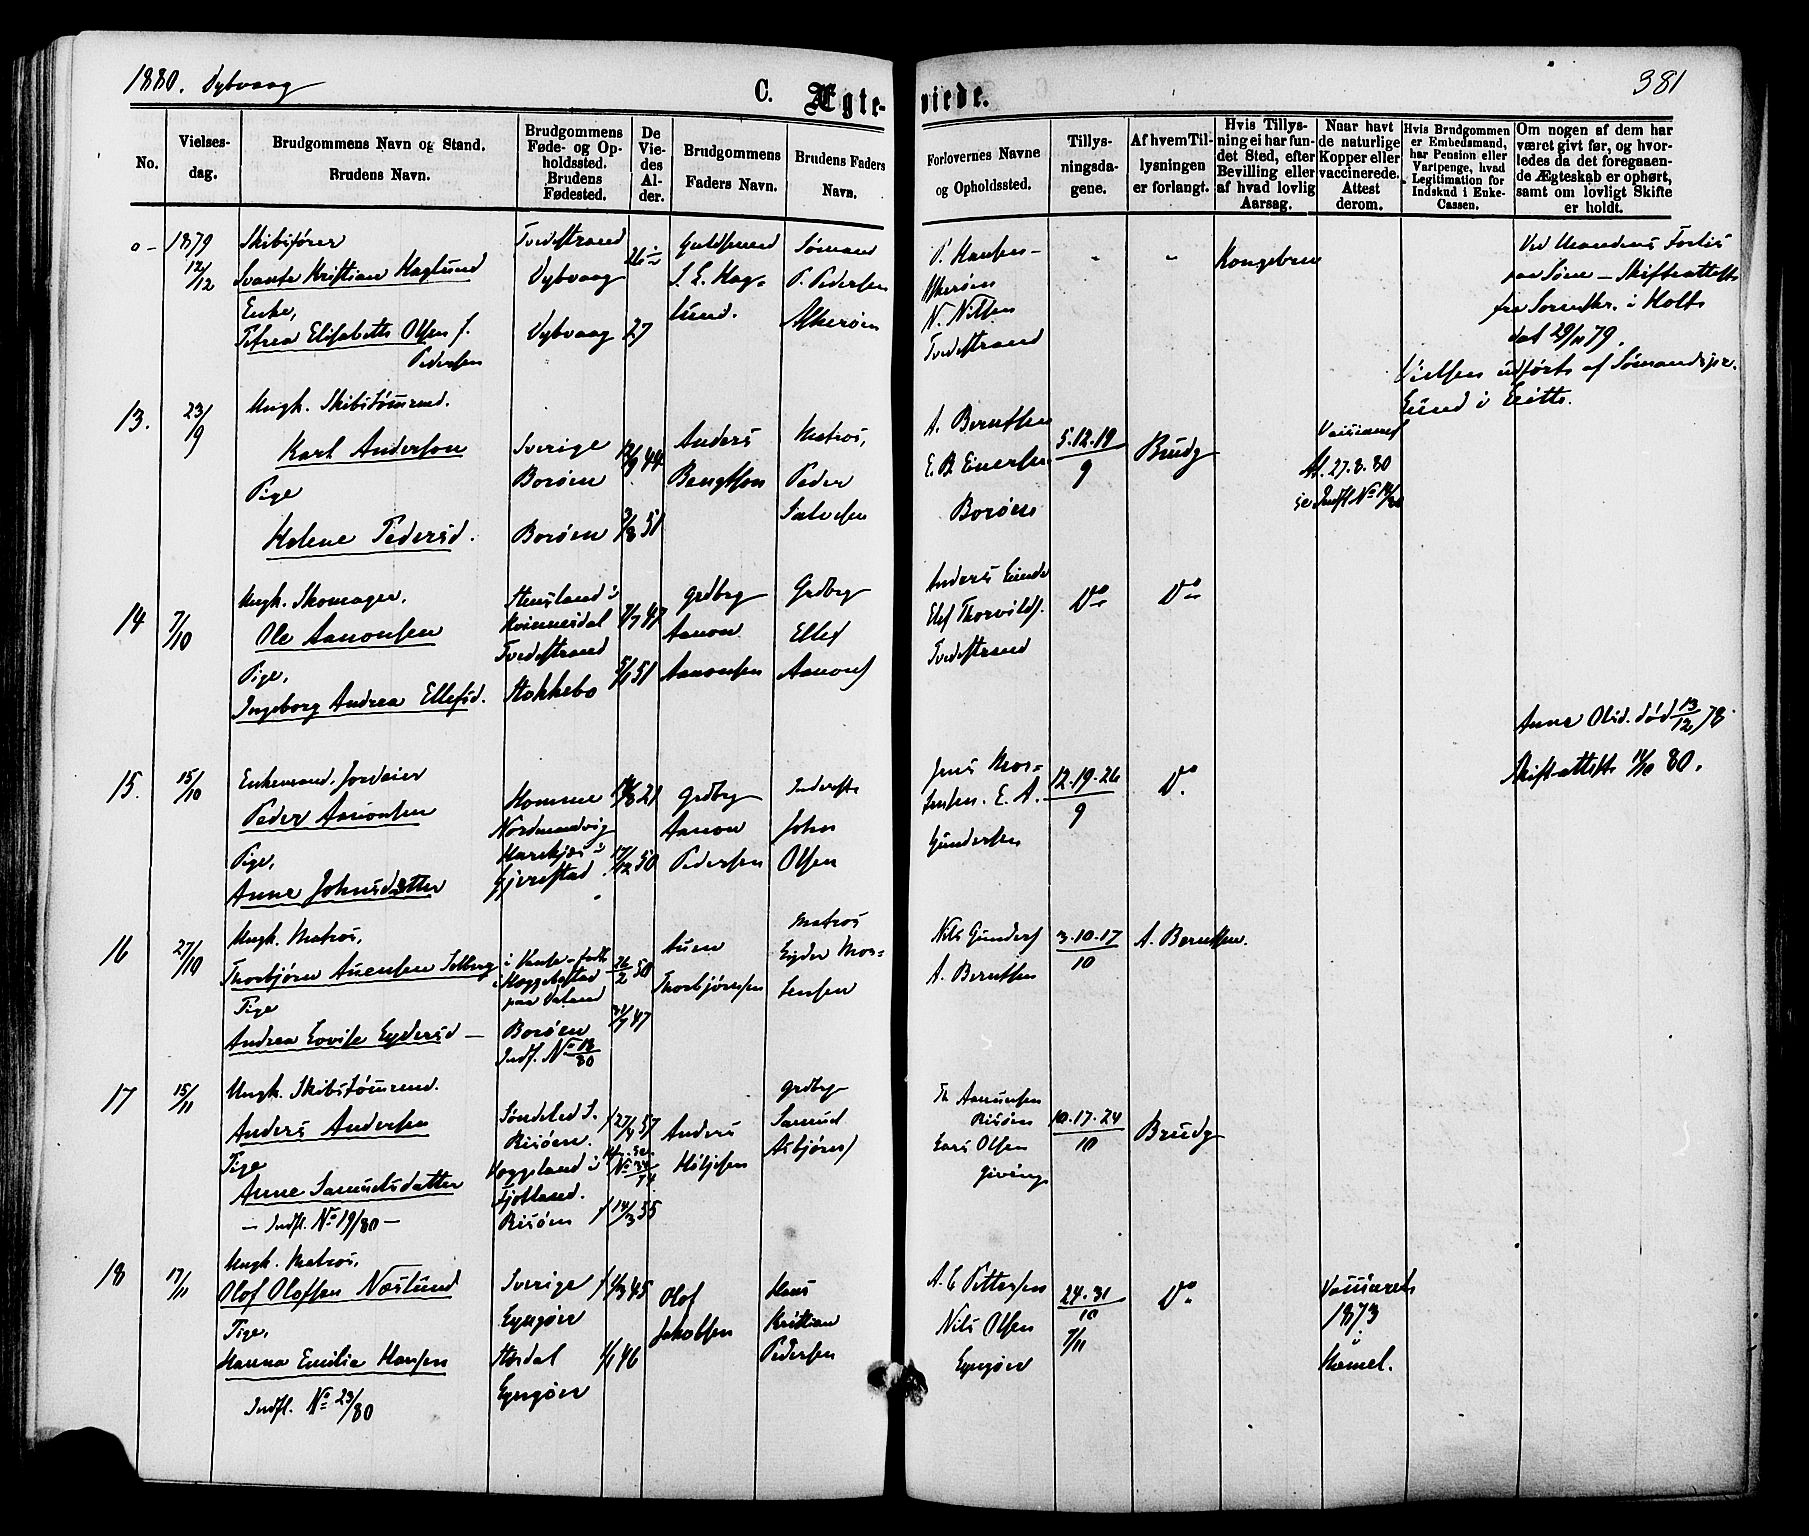 1880. Dybvaag
C. Ægteviede.
381
No.
Vielses-
dag.
Brudgommens Navn og Stand.
Brudens Navn.
Brudgommens
Føde- og Op-
holdssted.
Brudens
Fødested.
De
Vie-
des
Al-
der.
Brudgommens
Faders Navn.
Brudens Faders
Navn.
Forlovernes Navne
og Opholdssted.
Tillys-
ningsda-
gene.
Af hvem Til-
lysningen
er forlangt.
Hvis Tillys-
ning ei har fun-
det Sted, efter
Bevilling eller
af hvad lovlig
Aarsag.
Naar havt
de naturlige
Kopper eller
vaccinerede.
Attest
derom.
Hvis Brudgommen
er Embedsmand,
har Pension eller
Vartpenge, hvad
Legitimation for
Indskud i Enke-
Cassen.
Om nogen af dem har
været givt før, og hvor-
ledes da det foregaaen-
de Ægteskab er ophørt,
samt om lovligt Skifte
er holdt.
o-
1879
12/12
Skibsfører
Svante Kristian Haglund
Enke,
Petrea Elisabeth Olsen f.
Pedersen
Tvedestrand
Dybvaag
Dybvaag
26
27
Guldsmed
S. E. Hag-
lund.
Sømand
P. Pedersen
Askerøen
P. Hansen
Askerøen
N. Nilsen
Tvedestrand
Kongebrev
Ved Mandens Forlis
paa Søen - Skifteattest
fra Sorenskr. i Holt
dat 29/11 79.
Vielsen udført af Sømandspr.
Lund i Leith.
13.
23/9
Ungk. Skibstømrmd.
Karl Anderson
Pige
Helene Pedersd.
Sverige
Borøen
Borøen
12/9 44
3/8 51
Anders
Bengtson
Matros,
Peder
Salvesen
A. Berntsen
E. B. Einersen
Borøen
5.12.19
9
Brudg
Vaccineret
At. 27.8.80
se Indfl. No 14/80
14
7/10
Ungk. Skomager,
Ole Aanonsen
Pige,
Ingeborg Andrea Ellefsd.
Stensland i
Kvinnesdal
Tvedestrand
Stokkebo
7/7 47
5/1 51
Grdbrg
Aanon
Aanonsen
Grdbrg
Ellef
Aanons
Anders Lunde
Elef Thorvilds.
Tvedestrand
Do
Do
15.
15/10
Enkemand, Jordeier
Peder Aanonsen
Pige,
Anne Johnsdatter
Homme
Nordmandvig
Harekjær i
Gjerestad
14/8 21
17/12 50
Grdbrg
Aanon
Pedersen
Inderst
John
Olsen
Jens Mor-
tensen. E. A.
Gundersen
12.19.26
9
Do.
Anne Olsd. død 13/12 78
Skifteattest 11/10 80.
16
27/10
Ungk. Matros,
Thorbjørn Auensen Selberg
Pige
Andrea Lovise Eydersd -
Hæggebostad
paa Valand
Borøen
Indfl. No 18/80
26/2 50
47
Auen
Thorbjørnsen
Matros
Eyder Mor-
tensen
Nils Gunders
A. Berntsen
3.10.17
10
A. Berntsen.
17
15/11
Ungk. Skibstømrmd.
Anders Andersen
Pige
Anne Samuelsdatter
- Indfl. No 19/80 -
Søndeled S.
Risøen.
Hoggeland i
Fjotland.
Risøen
27/4 57
14/3 55
Anders
Kiljesen
Grdbrg
Samuel
Asbjørns
Th Aanunsen
Risøen
Lars Olsen
Giving
10.17.24
10
Brudg
18
17/11
Ungk. Matros,
Olof Olofsen Næslund
Pige,
Hanna Emilie Hansen
Indfl. No 23/80
Sverige
Lyngøer
Aasdal
Lyngøer
4/3 45
4/1 46
Olof
Jakobsen
Hans
Kristian
Pedersen
A. E Pettersen
Nils Olsen
Lyngøer
24.31
10
7/11
Do
Vaccineret
1873
i
Hemel.